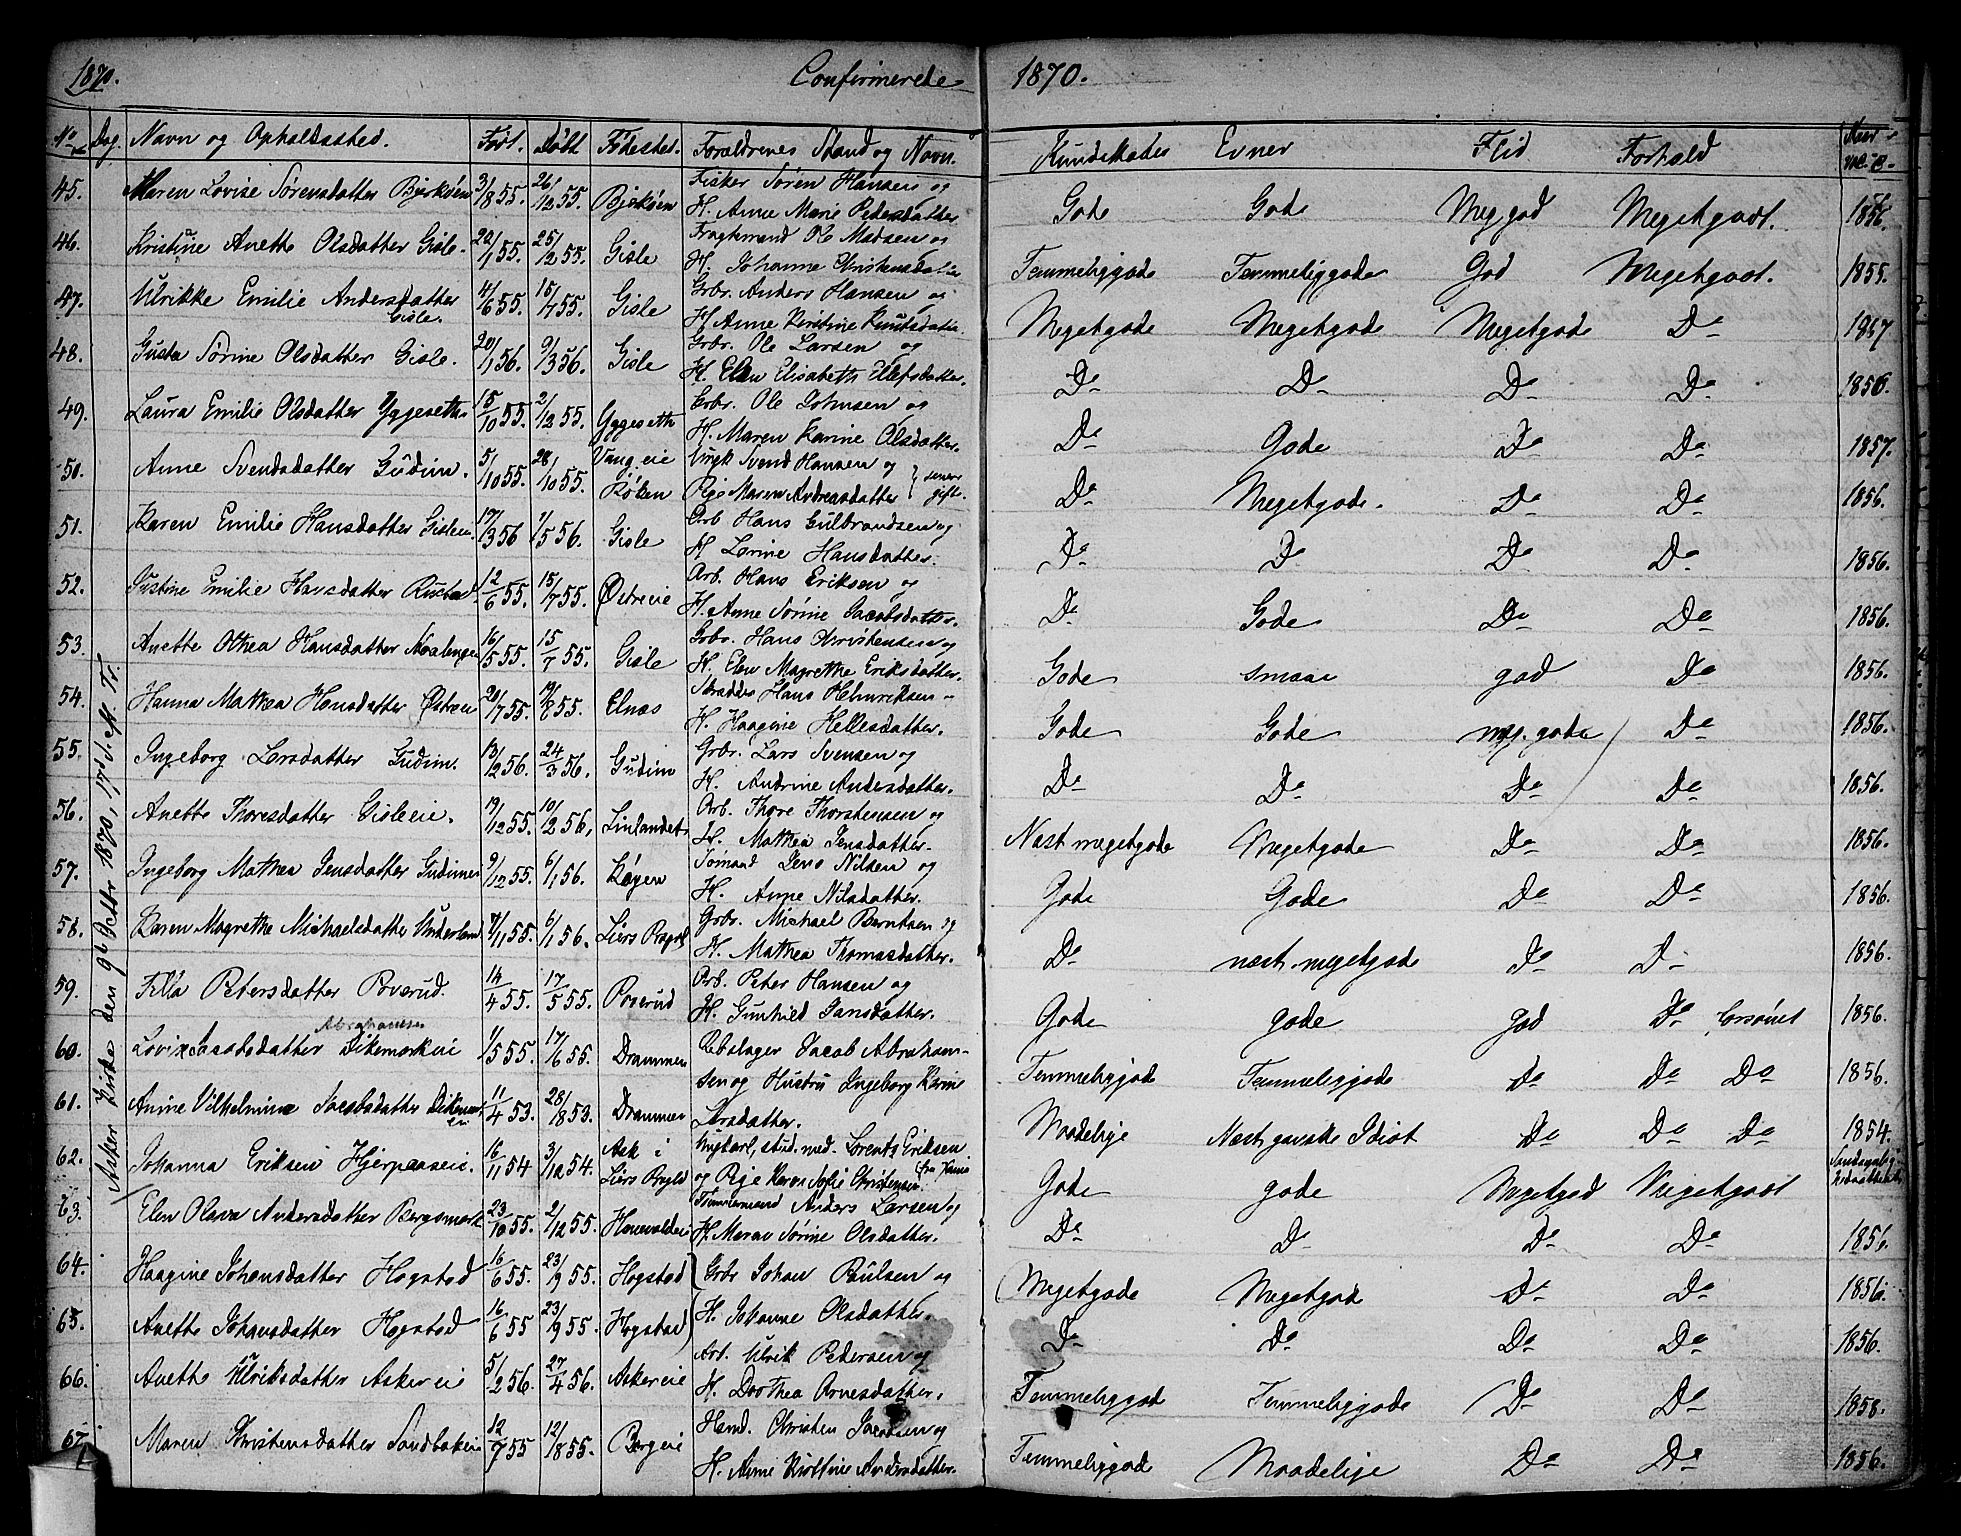 1870. Confirmerede 1870.
No Dag. Navn og Opholdssted. Født. Døbt Fødested. Forældrenes Stand og Navn. Kundskaber Evner Flid Forhold
Asker Kirke den 9de Octbr 1870, 17d. eft. Tr.
45. Maren Lovise Sørensdatter Bjerkøen 3/8 55. 26/12 55. Bjerkøen Fisker Søren Hansen og H. Anne Marie Pedersdatter Gode Gode Meg god Megetgodt. 1856
46. Kristine Anette Olsdatter Gisle. 22/1 55. 25/12 55. Gisle Fragtemand Ole Madsen og H. Johanne Christensdatter Temmeliggode Temmeliggode God Megetgodt. 1855.
47. Ulrikke Emilie Andersdatter Gisle. 4/6 55. 15/7 55. Gisle Grbr. Anders Hansen og H. Anne Kirstine Knutsdatter Megetgode Megetgode Megetgode Do 1867
48. Gusta Sørine Olsdatter Gisle. 20/1 56. 9/3 56. Gisle Grbr. Ole Larsen og H. Elen Elisabeth Ellefsdatter. Do Do Do Do 1856.
49. Laura Emilie Olsdatter Yggeseth 15/10 55. 2/12 55. Yggeseth Grbr. Ole Johnsen og H. Maren Karine Olsdatter. Do Gode Do Do 1857.
50. Anne Svendsdatter Gudim. 5/10 55. 28/10 55. Vangeie Røken Ungk Svend Hansen og Pige Maren Andreasdatter } senere gift. Do Megetgode. Do Do 1856.
51. Karen Emilie Hansdatter Gisleeie 17/3 56 1/5 56. Gisle Arb Hans Gulbrandsen og H Lovine Hansdatter. Do Do Do Do 1856.
52. Justine Emilie Hansdatter Rustad. 12/6 55. 15/7 55. Østreeie Arb. Hans Eriksen og H. Anne Sørine Jacobsdatter. Do Gode Do Do 1856.
53. Anette Othea Hansdatter 16/5 55. 15/7 55. Gisle Grbr. Hans Christensen og H. Elen Magrethe Eriksdatter. Gode smaae god Do 1856.
54. Hanna Mathea Hansdatter Østreeie 20/7 55. 19/8 55. Elnæs Skrædder Hans Helmriksen - H. Haagine Hellesdatter. Gode Gode meg. gode Do 1856.
55. Ingeborg Larsdatter Gudim. 13/12 56. 24/3 56. Gudim Grbr. Lars Svensen og H. Andrine Andersdatter. Do Do Do Do 1856.
56. Anette Thoresdatter Gisleeie. 19/12 55. 10/2 56. Linlandet Arb. Thore Thorstensen og H. Mathea Jensdatter. Næst megetgode Megetgode Do Do 1856.
57. Ingeborg Mathea Jensdatter Gudimeie 9/12 55. 6/1 56. Røgen Sømand Jens Nilsen og H. Anne Nilsdatter. Gode Gode Do Do 1856.
58. Karen Magrethe Michaelsdatter Underland 7/11 55. 6/1 56. Liers Prgjld Grbr. Michael Berntsen og H. Mathea Thomasdatter. Do næst megetgode Do Do 1856.
59. Tilla Petersdatter Poverud. 14/4 55. 17/5 55. Poverud Arb. Peter Hansen og H. Gunhild Jansdatter. Gode gode god Do 1856.
60. Lovise Jacobsdatter Abrahamsen Dikemarkeie 1/5 55. 17/6 55. Drammen Rebslager Jacob Abrahamsen og Hustru Ingeborg Karine Larsdatter. Temmeliggode Temmeliggode Do Do Do 1856.
61. Anine Vilhelmine Jacobsdatter Dikemarkeie 11/4 53. 28/8 53. Drammen Maadelige Næst ganske Idiot Do Do Do 1854.
62. Johanna Eriksen Hjerpaaseie. 16/11 54 3/12 54. Ask i Liers Prgjld Ungkarl, stud. med. Lorents Eriksen og Pige Karen Sofie Christensen. Gode gode Megetgod Megetgodt
63. Elen Olava Andersdatter Bergsmark 23/10 55. 2/12 55. Tømmermand Anders Larsen og H. Maren Sørine Olsdatter. Do Do Do Do 1856.
64. Haagine Johansdatter Hogstad 16/6 55. 23/9 55. Hogstad Grbr Johan Paulsen og Megetgode Megetgode Do Do 1856.
65. Anette Johansdatter Hogstad 16/6 55 23/9 55. Hogstad H. Johanne Olsdatter. Do Do Do Do 1856.
66. Anette Ulriksdatter Askereie 5/2 56. 27/4 56. Askereie Arb. Ulrik Pedersen og H. Dorthea Arnesdatter. Temmeliggode Temmeliggode Do Do 1858.
67. Maren Christensdatter Sandbakeie 12/7 55 12/8 55. Bergeie Hand. Christen Jacobsen og H. Anne Kirstine Andersdatter. Temmeliggode Maadelige Do Do 1856.